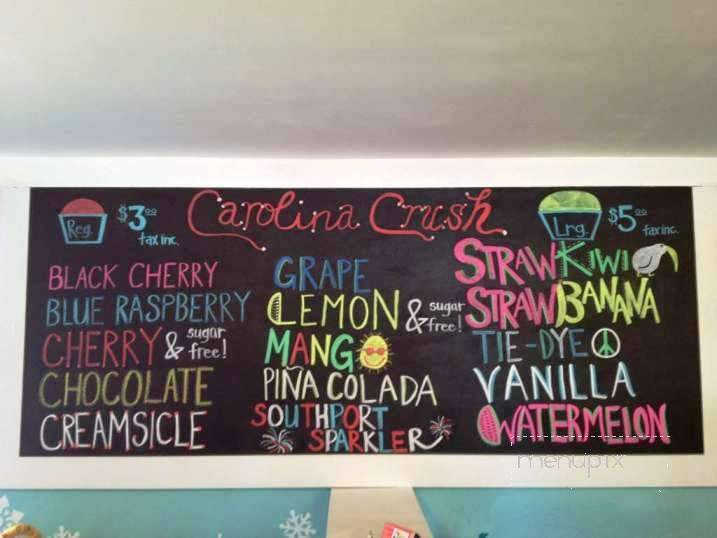 Carolina Crush
Reg.
$3.00
tax inc.
Lrg.
$5.00
tax inc.
BLACK CHERRY
BLUE RASPBERRY
CHERRY & sugar free!
CHOCOLATE
CREAMSICLE
GRAPE
LEMON & sugar free!
MANGO
PIÑA COLADA
SOUTHPORT
SPARKLER
STRAWKIWI
STRAWBANANA
TIE-DYE
VANILLA
WATERMELON
menupix